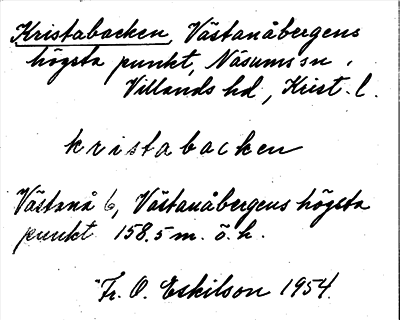 Kristabacken, Västanåbergens
högsta punkt, Näsums sn.
Villands hd, Krist. l.
kristabacken
Västanå 6, Västanåbergens högsta
punkt 158.5 m. ö. h.
Fr. O. Eskilson 1954.